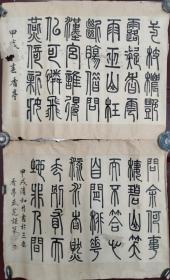 弌枝穠艷
露凝香雲
雨巫山枉
斷腸借問
漢宮誰得
似可憐飛
燕倚新妝
甲戌
問余何事
棲碧山笑
而不答心
自閒桃花
流水窅然
去別有天
地非人間
甲戌清和月書於三